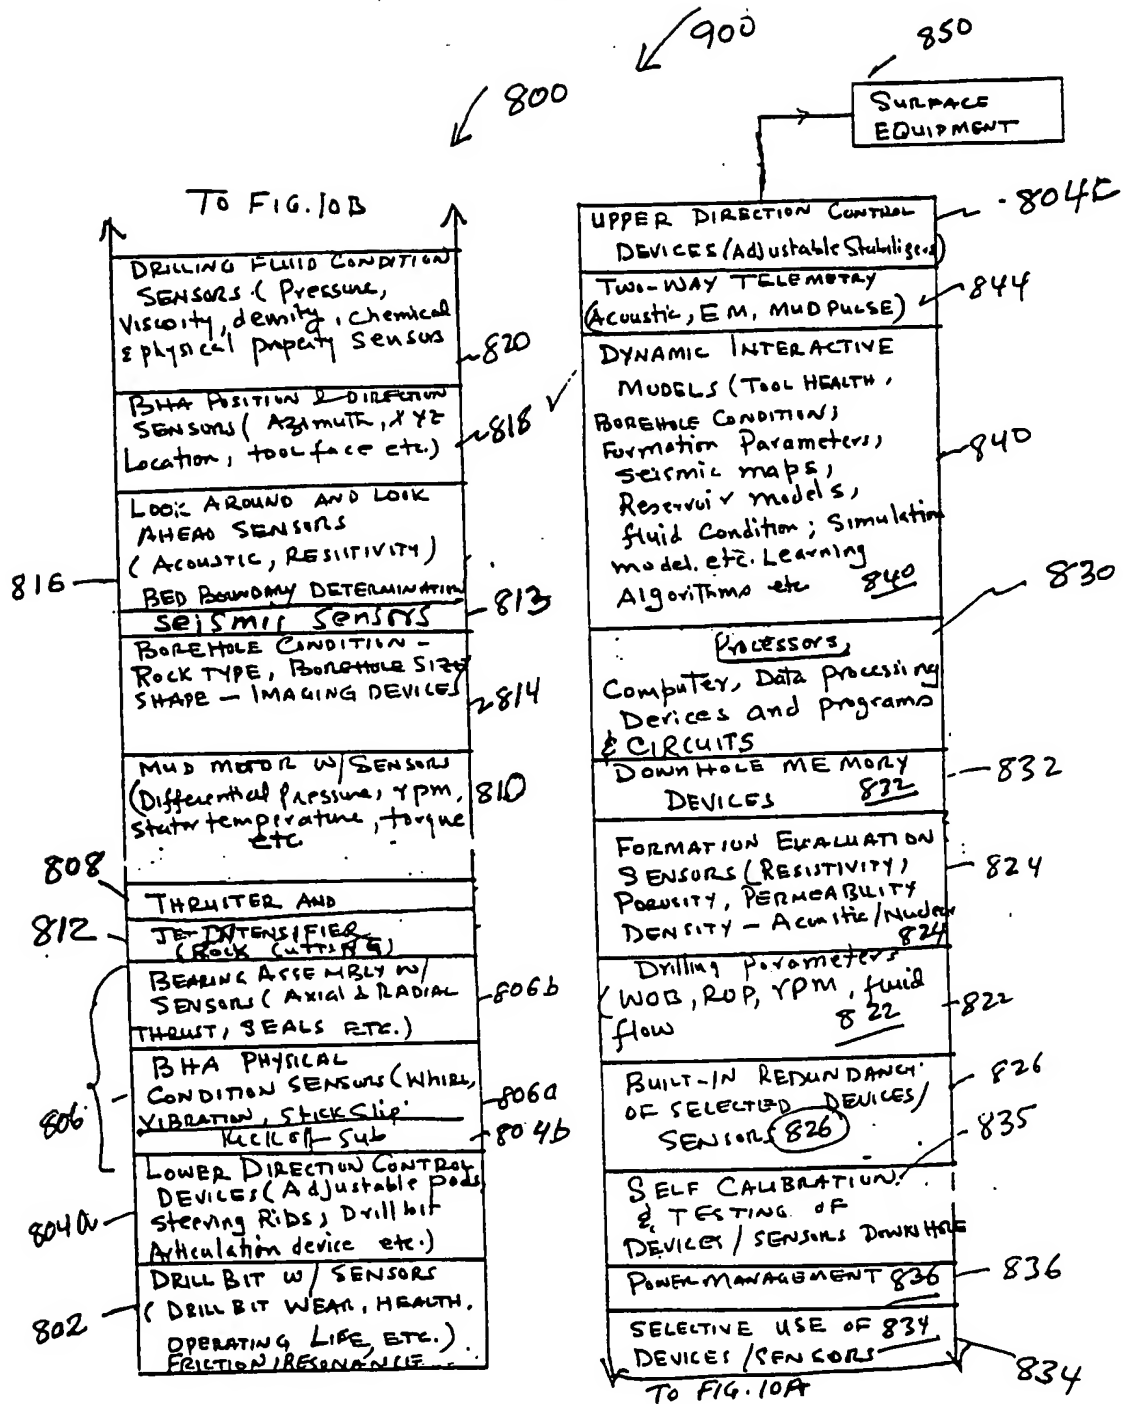 900
850
800
SURFACE
EQUIPMENT
TO FIG. 10B
DRILLING FLUID CONDITION
SENSORS (Pressure,
Viscosity, density, chemical
& physical property sensors
820
BHA POSITION & DIRECTION
SENSORS (Azimuth, XYZ
Location, tool face etc.)
818
LOOK AROUND AND LOOK
AHEAD SENSORS
(ACOUSTIC, RESISTIVITY)
BED BOUNDARY DETERMINATION
816
813
Seismic Sensors
BOREHOLE CONDITION -
ROCK TYPE, BOREHOLE SIZE
SHAPE - IMAGING DEVICES
814
MUD MOTOR W/ SENSORS
(Differential Pressure, rpm,
stator temperature, torque
etc.
810
808
THRUSTER AND
812
JET INTENSIFIER
(ROCK CUTTING)
BEARING ASSEMBLY W/
SENSORS (AXIAL & RADIAL
THRUST, SEALS ETC.)
806b
BHA PHYSICAL
CONDITION SENSORS (WHIRL,
VIBRATION, Stick Slip
806
806a
Kick off Sub
804b
LOWER DIRECTION CONTROL
DEVICES (Adjustable pads,
Steering Ribs, Drill bit
Articulation device etc.)
804a
DRILL BIT W/ SENSORS
(DRILL BIT WEAR, HEALTH,
OPERATING LIFE, ETC.)
FRICTION/RESONANCE
802
UPPER DIRECTION CONTROL
DEVICES (Adjustable Stabilizers)
804C
TWO-WAY TELEMETRY
(Acoustic, EM, MUD PULSE)
844
DYNAMIC INTERACTIVE
MODELS (TOOL HEALTH,
BOREHOLE CONDITION;
Formation Parameters,
Seismic maps,
Reservoir models,
fluid Condition; Simulation
model. etc. Learning
Algorithms etc 840
840
830
Processors,
Computer, Data processing
Devices and programs
& CIRCUITS
DOWNHOLE MEMORY
DEVICES 832
832
FORMATION EVALUATION
SENSORS (RESISTIVITY,
POROSITY, PERMEABILITY
DENSITY - Acoustic/Nuclear
824
824
Drilling Parameters
(WOB, ROP, rpm, fluid
flow 822
822
BUILT-IN REDUNDANCY
OF SELECTED DEVICES/
SENSORS 826
826
835
SELF CALIBRATION
& TESTING OF
DEVICES / SENSORS DOWNHOLE
POWER MANAGEMENT 836
836
SELECTIVE USE OF 834
DEVICES / SENSORS
834
TO FIG. 10A